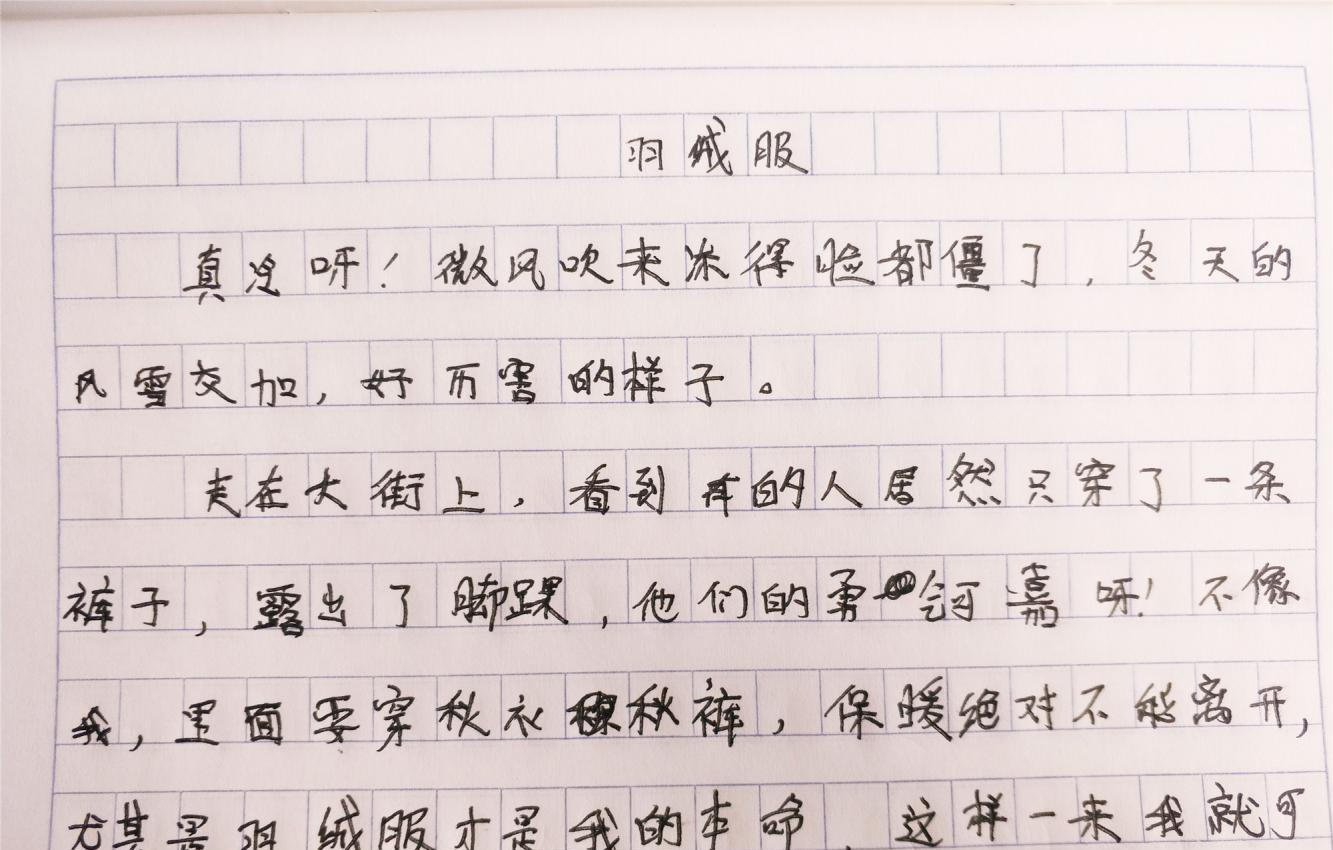 羽绒服
真冷呀！微风吹来冻得脸都僵了，冬天的
风雪交加，好历害的样子。
走在大街上，看到有的人居然只穿了一条
裤子，露出了脚踝，他们的勇气可嘉呀！不像
我，里面要穿秋衣秋裤，保暖绝对不能离开，
尤其是羽绒服才是我的本命，这样一来我就可